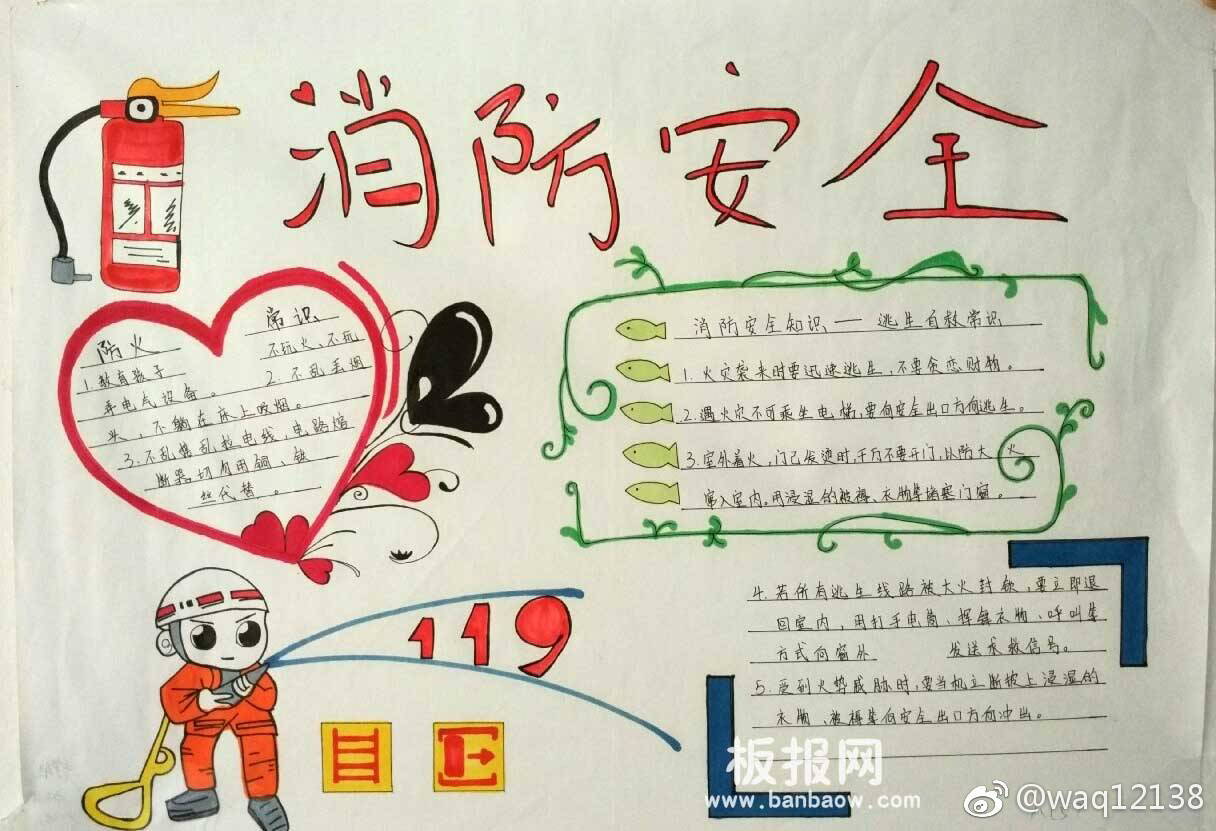 消防安全
防火 常识
1.教育孩子 不玩火、不玩
弄电气设备。 2.不乱丢烟
头，不躺在床上吸烟。
3.不乱接乱拉电线，电路熔
断器切勿用铜、铁
丝代替。
消防安全知识——逃生自救常识
1.火灾袭来时要迅速逃生，不要贪恋财物。
2.遇火灾不可乘坐电梯，要向安全出口方向逃生。
3.室外着火，门已发烫时，千万不要开门，以防大火
窜入室内。用浸湿的被褥、衣物等堵塞门窗。
119
4.若所有逃生线路被大火封锁，要立即退
回室内，用打手电筒、挥舞衣物、呼叫等
方式向窗外 发送求救信号。
5.受到火势威胁时，要当机立断披上浸湿的
衣物、被褥等向安全出口方向冲出。
板报网
www.banbaow.com
@waq12138